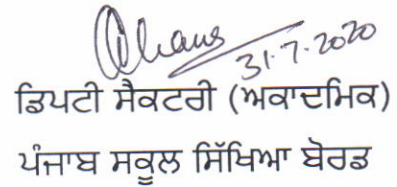 31.7.2020
ਡਿਪਟੀ ਸੈਕਟਰੀ (ਅਕਾਦਮਿਕ)
ਪੰਜਾਬ ਸਕੂਲ ਸਿੱਖਿਆ ਬੋਰਡ